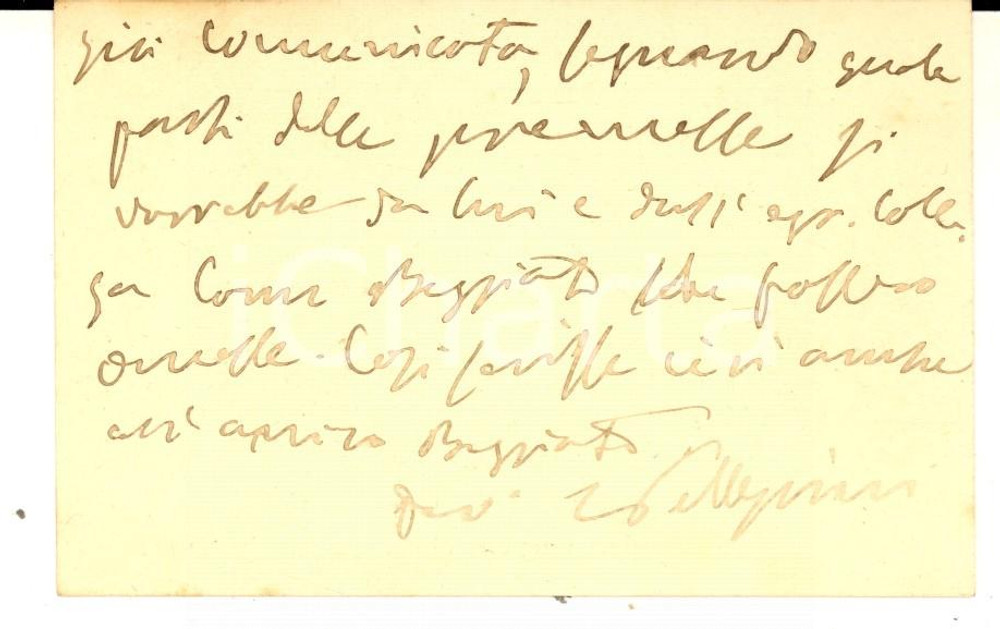 già comunicata, segnando quali
parti delle premesse si
vorrebbe da lui e dall' egr. Colle-
ga Comm Beggiato che fossero
omesse. Così scrisse ieri anche
all' amico Beggiato.
Dev° Pellegrini
iCharta